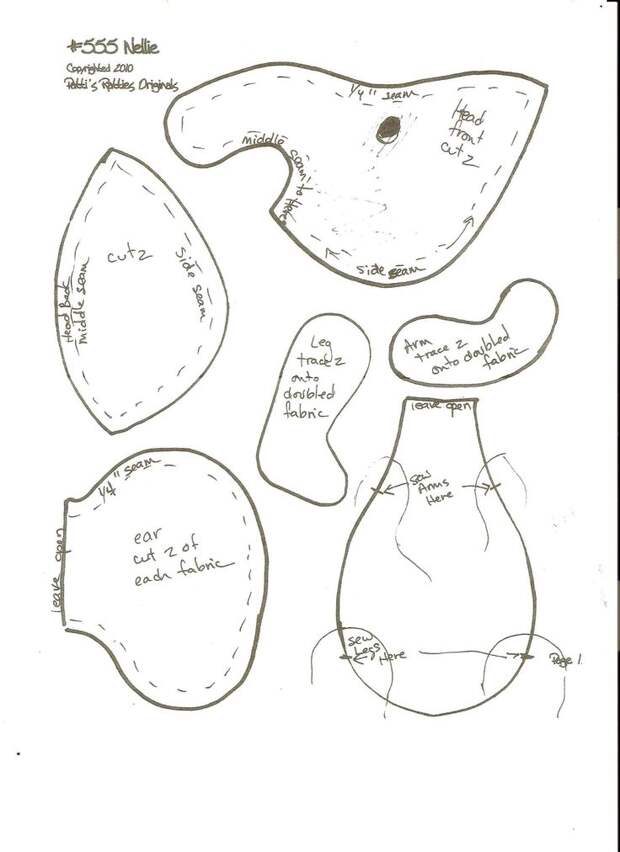 #555 Nellie
Copyrighted 2010
Patti's Ratties Originals
1/4" seam
Head
front
cut 2
middle seam to Here
side seam
cut 2
side seam
Head Back
middle seam
Leg
trace 2
onto
doubled
fabric
Arm
trace 2
onto doubled
fabric
leave open
sew
Arms
Here
1/4" seam
ear
cut 2 of
each fabric
leave open
sew
Legs
Here
Page 1